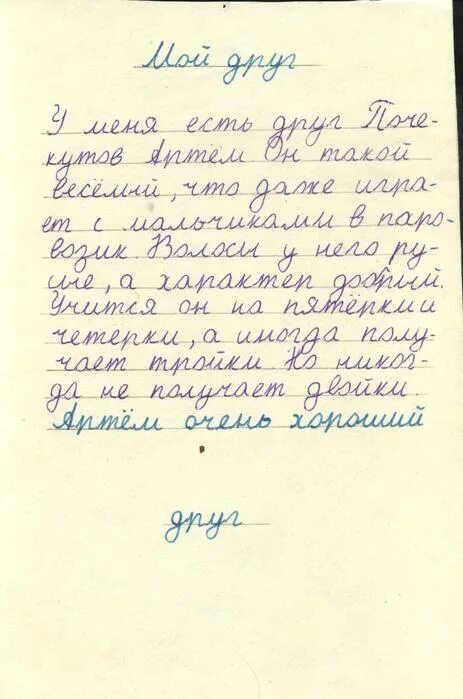 Мой друг
У меня есть друг Поче-
кутов Артём Он такой
весёлый, что даже игра-
ет с мальчиками в паро-
возик. Волосы у него ру-
ые, а характер добрый.
Учится он на пятёрки и
четёрки, а иногда полу-
чает тройки. Но никог-
да не получает двойки.
Артём очень хороший
друг